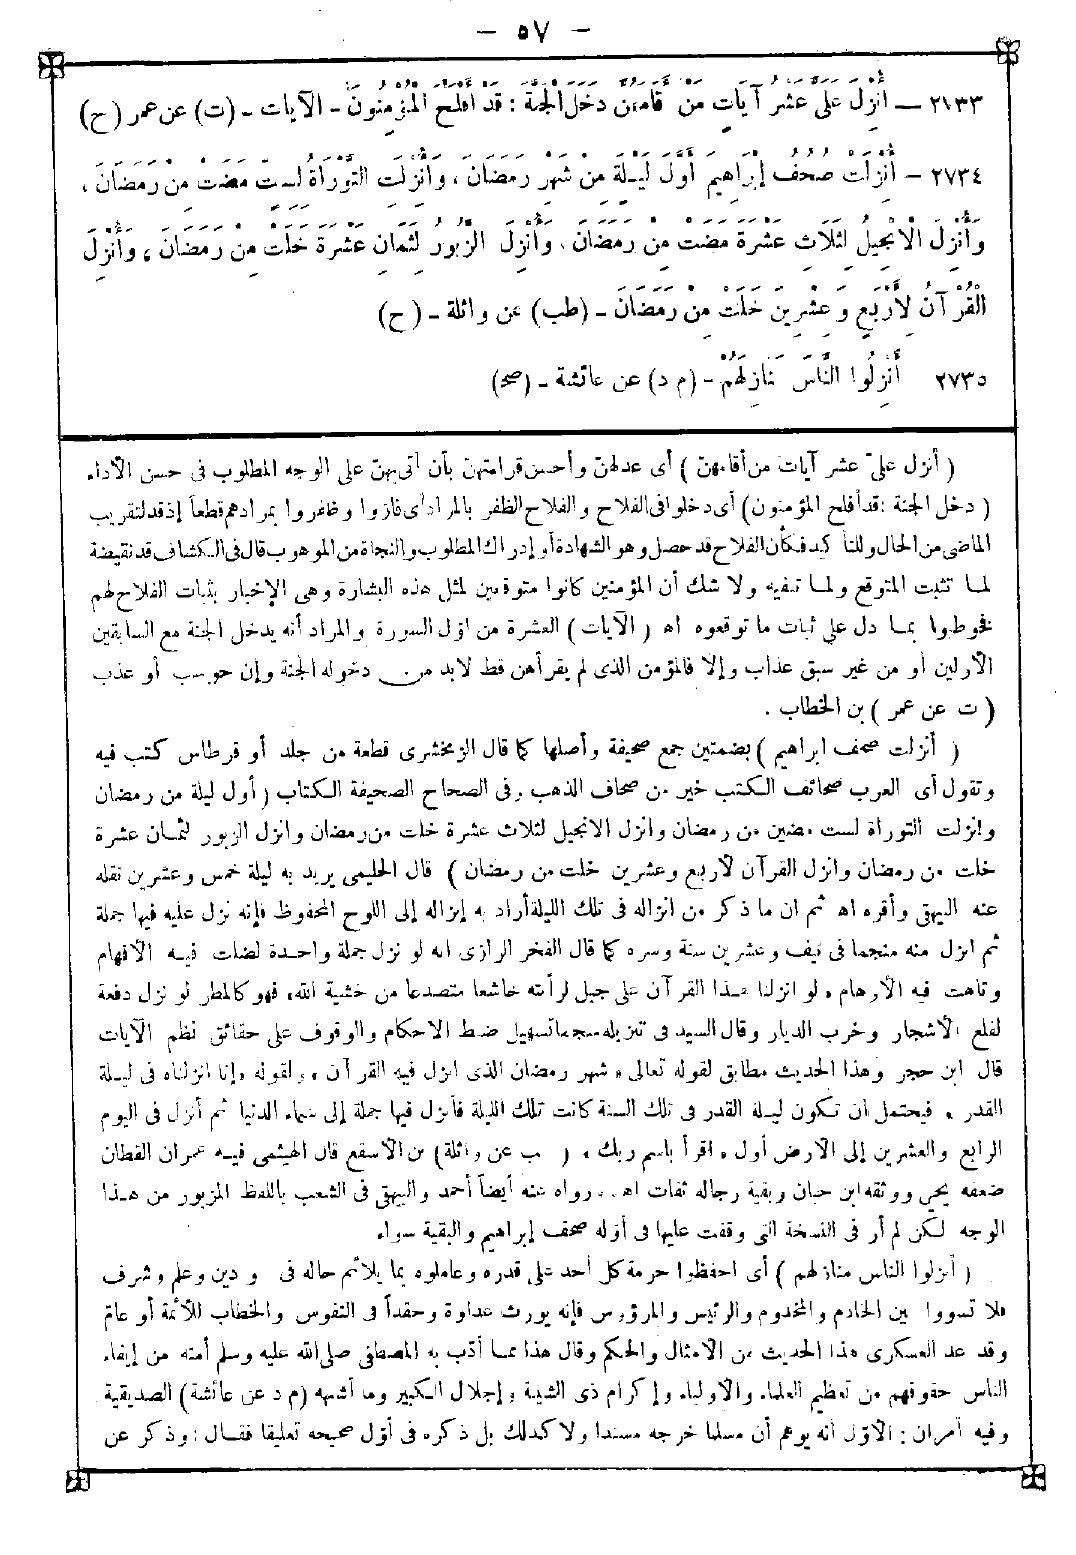 — ٥٧ —
٢٧٣٣ — أُنْزِلَ عَلَىَّ عَشْرُ آيَاتٍ مَنْ أَقَامَهُنَّ دَخَلَ الْجَنَّةَ : قَدْ أَفْلَحَ الْمُؤْمِنُونَ – الآيات – (ت) عن عمر (ح)
٢٧٣٤ – أُنْزِلَتْ صُحُفُ إِبْرَاهِيمَ أَوَّلَ لَيْلَةٍ مِنْ شَهْرِ رَمَضَانَ ، وَأُنْزِلَتِ التَّوْرَاةُ لِسِتٍّ مَضَتْ مِنْ رَمَضَانَ ،
وَأُنْزِلَ الْإِنْجِيلُ لِثَلَاثَ عَشْرَةَ مَضَتْ مِنْ رَمَضَانَ ، وَأُنْزِلَ الزَّبُورُ لِثَمَانَ عَشْرَةَ خَلَتْ مِنْ رَمَضَانَ ، وَأُنْزِلَ
الْقُرْآنُ لِأَرْبَعٍ وَعِشْرِينَ خَلَتْ مِنْ رَمَضَانَ – (طب) عن واثلة – (ح)
٢٧٣٥ أَنْزِلُوا النَّاسَ مَنَازِلَهُمْ – (م د) عن عائشة – (صح)
( أنزل علىّ عشر آيات من أقامهنّ ) أى عدلهنّ وأحسن قراءتهنّ بأن أتى بهنّ على الوجه المطلوب فى حسن الأداء
( دخل الجنة : قد أفلح المؤمنون) أى دخلوا فى الفلاح والفلاح الظفر بالمراد أى فازوا وظفروا بمرادهم قطعاً إذ قد لتقريب
الماضى من الحال وللتأكيد فكأن الفلاح قد حصل وهو الشهادة أو إدراك المطلوب والنجاة من الموهوب قال فى الكشاف قد نقيضة
لما تثبت المتوقع ولما تنفيه ولا شك أن المؤمنين كانوا متوقعين لمثل هذه البشارة وهى الإخبار بثبات الفلاح لهم
فخوطبوا بما دل على ثبات ما توقعوه اه ( الآيات ) العشرة من أوّل السورة والمراد أنه يدخل الجنة مع السابقين
الأولين أو من غير سبق عذاب وإلا فالمؤمن الذى لم يقرأهن قط لابد من دخوله الجنة وإن حوسب أو عذب
( ت عن عمر ) بن الخطاب .
( أنزلت صحف ابراهيم ) بضمتين جمع صحيفة وأصلها كما قال الزمخشرى قطعة من جلد أو قرطاس كتب فيه
وتقول أى العرب صحائف الكتب خير من صحاف الذهب وفى الصحاح الصحيفة الكتاب ( أول ليلة من رمضان
وانزلت التوراة لست مضين من رمضان وانزل الانجيل لثلاث عشرة خلت من رمضان وانزل الزبور لثمان عشرة
خلت من رمضان وانزل القرآن لأربع وعشرين خلت من رمضان ) قال الحليمى يريد به ليلة خمس وعشرين نقله
عنه البيهقى وأقره اه ثم ان ما ذكر من انزاله فى تلك الليلة أراد به إنزاله إلى اللوح المحفوظ فإنه نزل عليه فيها جملة
ثم انزل منه منجما فى نيف وعشرين سنة وسره كما قال الفخر الرازى انه لو نزل جملة واحدة لضلت فيه الأفهام
وتاهت فيه الأوهام ، لو انزلنا هذا القرآن على جبل لرأيته خاشعا متصدعا من خشية الله ، فهو كالمطر لو نزل دفعة
لقلع الأشجار وخرب الديار وقال السيد فى تنزيله منجما تسهيل ضبط الاحكام والوقوف على حقائق نظم الآيات
قال ابن حجر وهذا الحديث مطابق لقوله تعالى ، شهر رمضان الذى انزل فيه القرآن ، ولقوله ، إنا انزلناه فى ليلة
القدر ، فيحتمل ان تكون ليلة القدر فى تلك السنة كانت تلك الليلة فأنزل فيها جملة إلى سماء الدنيا ثم أنزل فى اليوم
الرابع والعشرين إلى الأرض أول ، اقرأ باسم ربك ، ( ب عن واثلة) بن الأسقع قال الهيثمى فيه عمران القطان
ضعفه يحيى ووثقه ابن حبان وبقية رجاله ثقات اه . رواه عنه أيضاً أحمد والبيهقى فى الشعب باللفظ المزبور من هذا
الوجه لكن لم أر فى النسخة التى وقفت عليها فى أوّله صحف إبراهيم والبقية سواء
( أنزلوا الناس منازلهم ) أى احفظوا حرمة كل أحد على قدره وعاملوه بما يلائم حاله فى و دين وعلم وشرف
فلا تسووا بين الخادم والمخدوم والرئيس والمرؤوس فإنه يورث عداوة وحقداً فى النفوس والخطاب للأئمة أو عامّ
وقد عد العسكرى هذا الحديث من الامثال والحكم وقال هذا مما أدّب به المصطفى صلى الله عليه وسلم أمته من إيفاء
الناس حقوقهم من تعظيم العلماء والاولياء وإكرام ذى الشيبة وإجلال الكبير وما أشبهه (م د عن عائشة) الصديقية
وفيه أمران : الأوّل أنه يوهم أن مسلما خرجه مسندا ولا كذلك بل ذكره فى أوّل صحيحه تعليقا فقال : وذكر عن